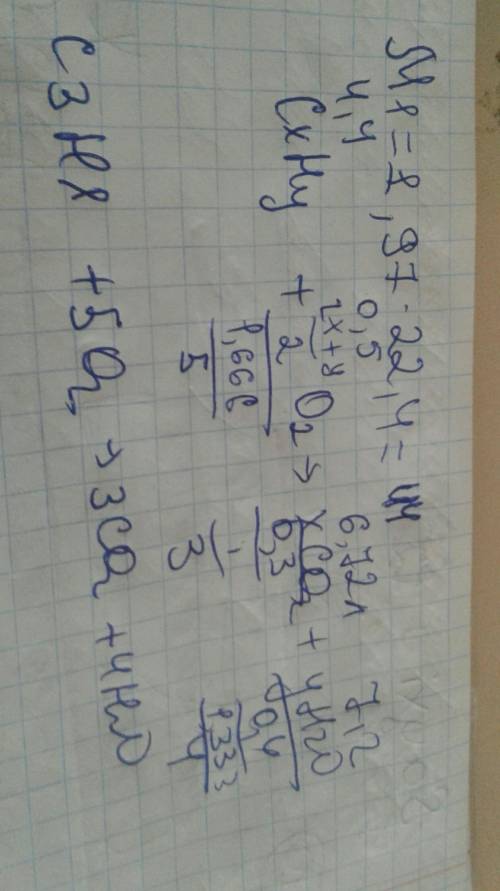 Mr = 1,97 · 22,4 = 44
4,4 0,5 6,72л 7,2
CxHy + 2x+y/2 O2 → xCO2 + yH2O
1,666 0,3 0,4
5 1 1,333
3 4
C3H8 + 5O2 → 3CO2 + 4H2O